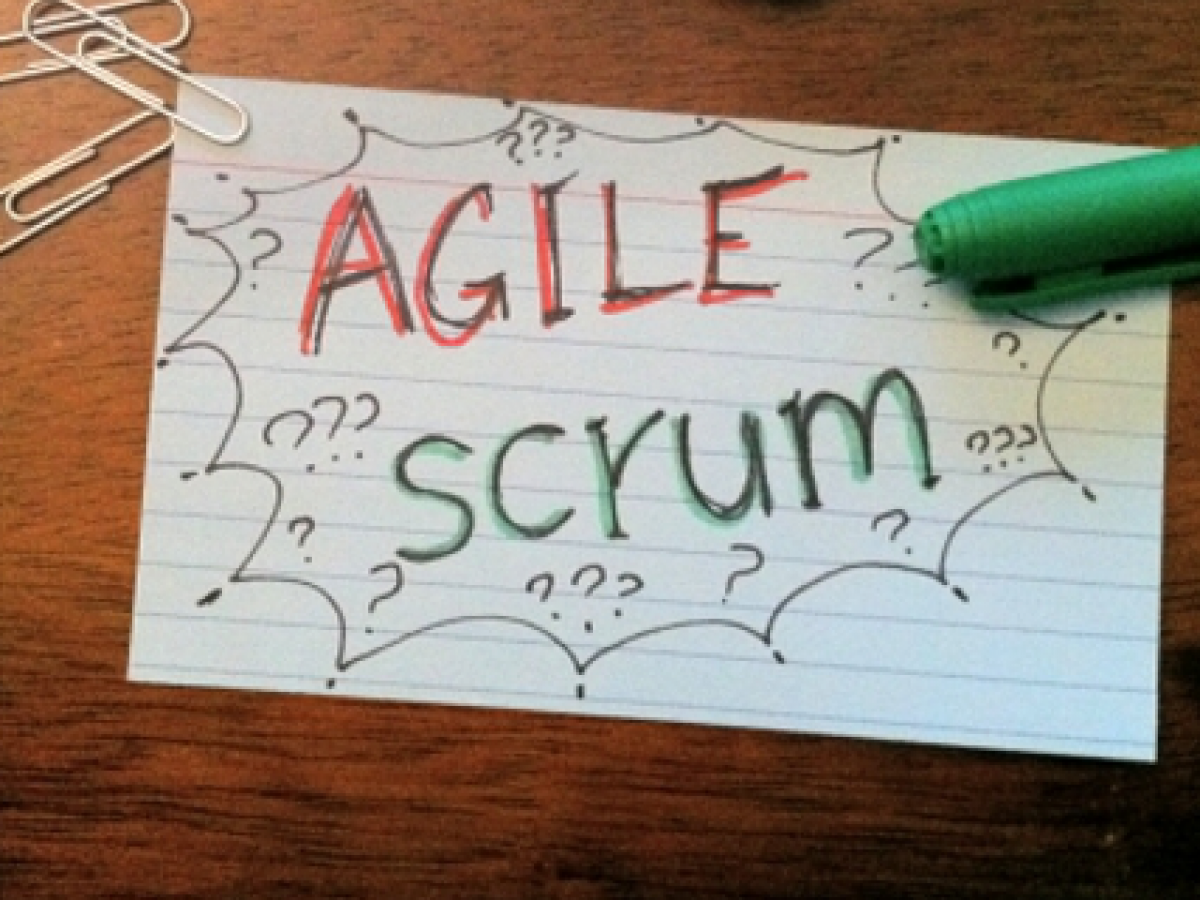 ???
AGILE
? ??
?
??? scrum ???
? ?
? ??? ?